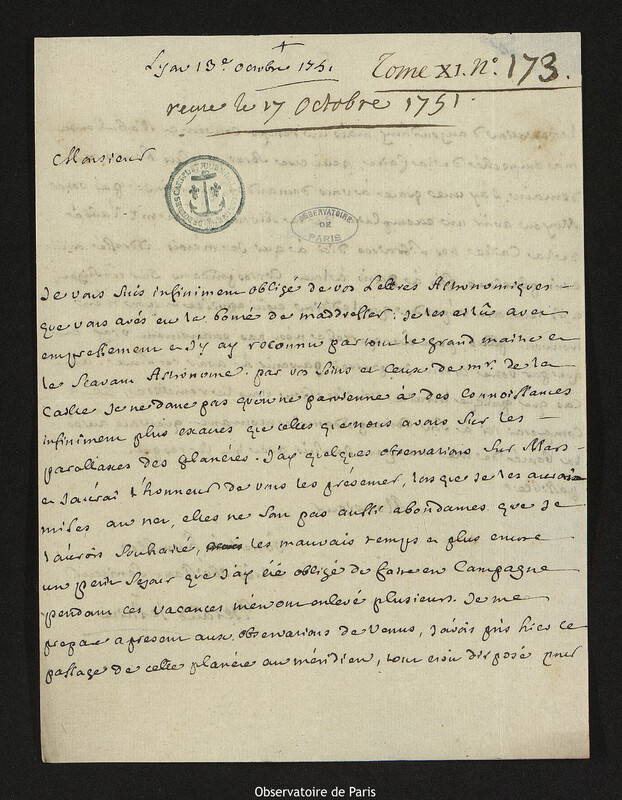 Lyon 13e Octobre 1751.
Tome XI. No. 173.
reçue le 17 Octobre 1751.
Monsieur
OBSERVATOIRE
DE
PARIS
Je vous suis infiniment obligé de vos Lettres Astronomiques
que vous avés eu la bonté de m'addresser; je les ai lû avec
empressement et j'y ay reconnu partout le grand maitre et
le Scavant Astronome. par vos soins et ceux de mr. de la
Caille je ne doute pas qu'on ne parvienne à des connoissances
infiniment plus exactes que celles que nous avons sur les
parallaxes des planétes. J'ay quelques observations sur Mars
et j'aurai l'honneur de vous les présenter, lorsque je les aurai
mises au net, elles ne sont pas aussi abondantes que je
l'aurois souhaité, les mauvais temps et plus encore
un petit sejour que j'ay été obligé de faire en Campagne
pendant ces vacances m'en ont enlevé plusieurs. Je me
prepare apresent aux observations de Venus, j'avois pris hier le
passage de cette planéte au méridien, tout etoit disposé pour
Observatoire de Paris